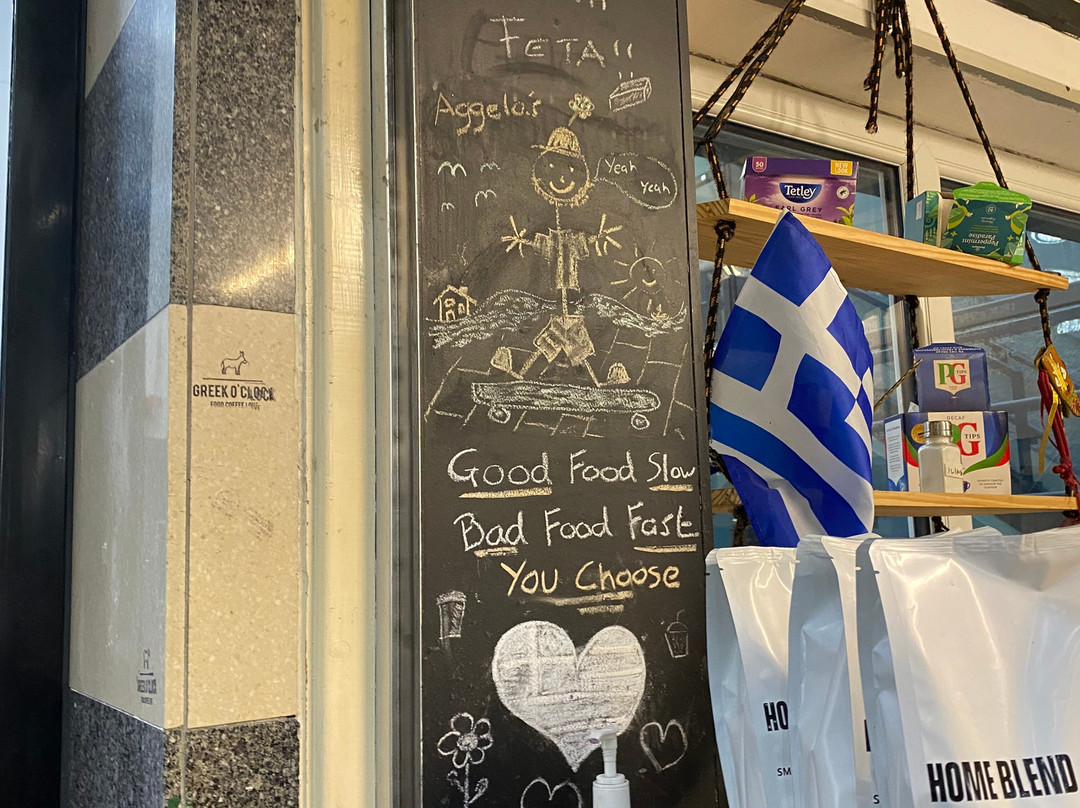 FETA!!
Aggelo's
Yeah
Yeah
Good Food Slow
Bad Food Fast
You Choose
GREEK O'CLOCK
FOOD COFFEE LOVE
GREEK O'CLOCK
50
NEW
LOOK
Tetley
EARL GREY
Peppermint
Paradise
PG
TIPS
DECAF
PG
TIPS
HO
SM
S
HOME BLEND